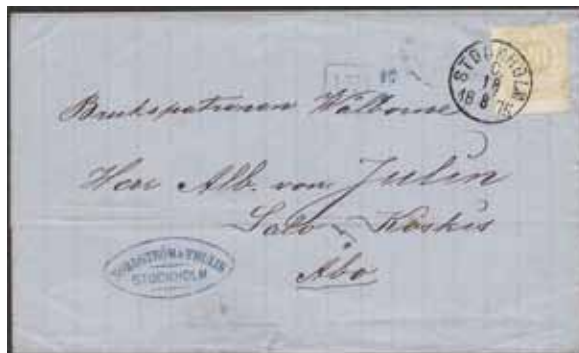 STOCKHOLM
18
8
Brukspatronen Walborne
Herr Alb. von Julin
Salo Koskis
Åbo
NORDSTRÖM & THULIN
STOCKHOLM